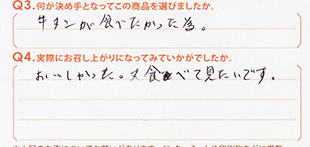 Q3.何が決め手となってこの商品を選びましたか。
牛タンが食べたかった為。
Q4.実際にお召し上がりになってみていかがでしたか。
おいしかった。又食べて見たいです。